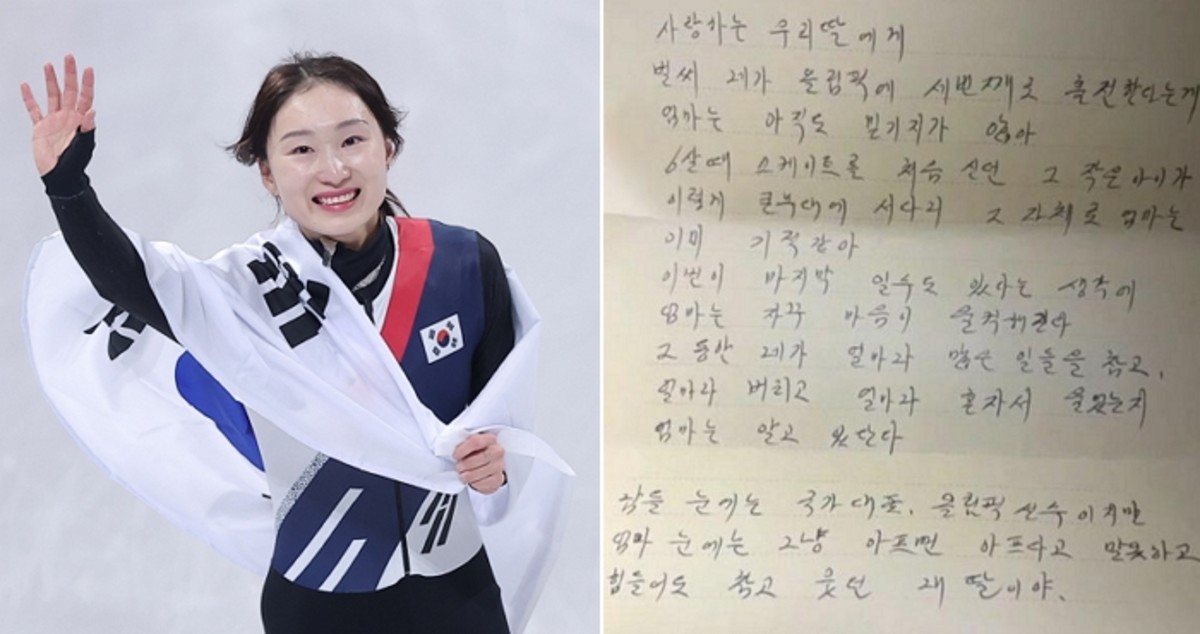 사랑하는 우리딸에게
벌써 네가 올림픽에 세번째로 출전한다는게
엄마는 아직도 믿기지가 않아
6살때 스케이트를 처음 신던 그 작은아이가
이렇게 큰무대에 서다니 그 자체로 엄마는
이미 기적같아
이번이 마지막 일수도 있다는 생각에
엄마는 자꾸 마음이 울컥해진다
그동안 네가 얼마나 많은 일들을 참고,
얼마나 버티고 얼마나 혼자서 울었는지
엄마는 알고 있단다
남들 눈에는 국가대표, 올림픽 선수이지만
엄마 눈에는 그냥 아프면 아프다고 말못하고
힘들어도 참고 웃던 내 딸이야.